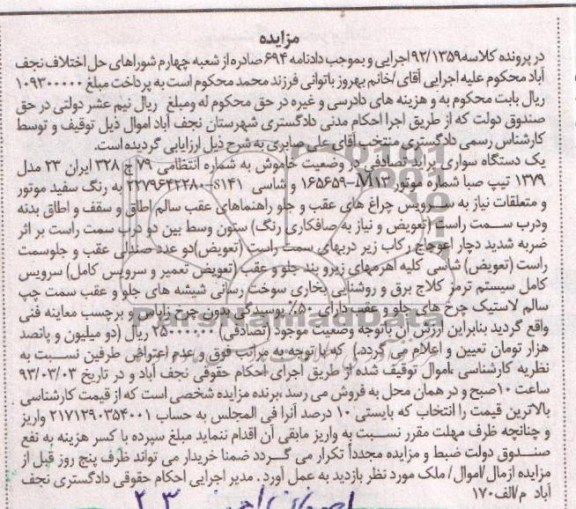 مزایده
در پرونده کلاسه۹۲/۱۳۵۹اجرایی و بموجب دادنامه ۶۹۴ صادره از شعبه چهارم شوراهای حل اختلاف نجف
آباد محکوم علیه اجرایی آقای/خانم بهروز باتوانی فرزند محمد محکوم است به پرداخت مبلغ ۱۰۹۳۰۰۰۰۰
ریال بابت محکوم به و هزینه های دادرسی و غیره در حق محکوم له ومبلغ ریال نیم عشر دولتی در حق
صندوق دولت که از طریق اجرا احکام مدنی دادگستری شهرستان نجف آباد اموال ذیل توقیف و توسط
کارشناس رسمی دادگستری منتخب آقای علی صابری به شرح ذیل ارزیابی گردیده است.
یک دستگاه سواری پراید تصادفی در وضعیت خاموش به شماره انتظامی ۷۹ ج ۳۲۸ ایران ۲۳ مدل
۱۳۷۹ تیپ صبا شماره موتور M۱۳–۱۶۵۶۵۹ و شاسی s۱۴۱–۲۲۷۹۶۴۲۲۸۰ به رنگ سفید موتور
و متعلقات نیاز به سرویس چراغ های عقب و جلو راهنماهای عقب سالم اطاق و سقف و اطاق بدنه
ودرب سمت راست (تعویض و نیاز به صافکاری رنگ) ستون وسط بین دو درب سمت راست بر اثر
ضربه شدید دچار اعوجاج رکاب زیر دربهای سمت راست (تعویض)دو عدد صندلی عقب و جلوسمت
راست (تعویض) شاسی کلیه اهرمهای زیرو بند جلو و عقب (تعویض تعمیر و سرویس کامل) سرویس
کامل سیستم ترمز کلاج برق و روشنایی بخاری سوخت رسانی شیشه های جلو و عقب سمت چپ
سالم لاستیک چرخ های جلو و عقب دارای ۵۰٪ پوسیدگی بدون چرخ زاپاس و برچسب معاینه فنی
واقع گردید بنابراین ارزش آن باتوجه وضعیت موجود (تصادفی) ۲۵۰۰۰۰۰۰ ریال (دو میلیون و پانصد
هزار تومان تعیین و اعلام می گردد.) که با توجه به مراتب فوق و عدم اعتراض طرفین نسبت به
نظریه کارشناسی ،اموال توقیف شده از طریق اجرای احکام حقوقی نجف آباد و در تاریخ ۹۳/۰۳/۰۳
ساعت ۱۰صبح و در همان محل به فروش می رسد ،برنده مزایده شخصی است که از قیمت کارشناسی
بالاترین قیمت را انتخاب که بایستی ۱۰ درصد آنرا فی المجلس به حساب ۲۱۷۱۲۹۰۳۵۴۰۰۱ واریز
و چنانچه ظرف مهلت مقرر نسبت به واریز مابقی آن اقدام ننماید مبلغ سپرده با کسر هزینه به نفع
صندوق دولت ضبط و مزایده مجدداً تکرار می گردد ضمنا خریدار می تواند ظرف پنج روز قبل از
مزایده ازمال/اموال/ ملک مورد نظر بازدید به عمل آورد . مدیر اجرایی احکام حقوقی دادگستری نجف
آباد م/الف۱۷۰